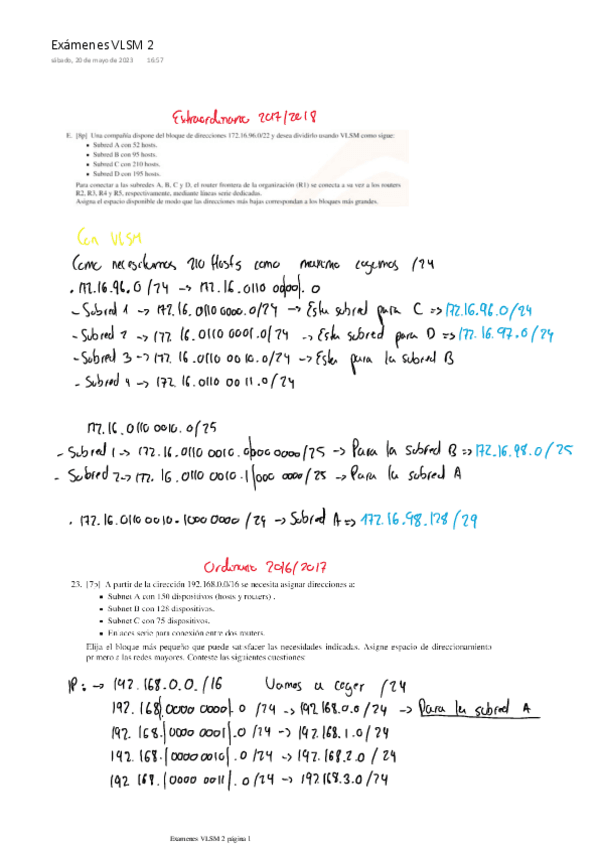 Exámenes VLSM 2
sábado, 20 de mayo de 2023 16:57
Extraordinaria 2017/2018
E. [8p] Una compañía dispone del bloque de direcciones 172.16.96.0/22 y desea dividirlo usando VLSM como sigue:
• Subred A con 52 hosts.
• Subred B con 95 hosts.
• Subred C con 210 hosts.
• Subred D con 195 hosts.
Para conectar a las subredes A, B, C y D, el router frontera de la organización (R1) se conecta a su vez a los routers
R2, R3, R4 y R5, respectivamente, mediante líneas serie dedicadas.
Asigna el espacio disponible de modo que las direcciones más bajas correspondan a los bloques más grandes.
Con VLSM
Como necesitamos 210 Hosts como maximo cogemos /24
. 172.16.96.0/24 -> 172.16.0110 00|00|.0
- Subred 1 -> 172.16.0110 0000.0/24 -> Esta subred para C => 172.16.96.0/24
- Subred 2 -> 172.16.0110 0001.0/24 -> Esta subred para D => 172.16.97.0/24
- Subred 3 -> 172.16.0110 0010.0/24 -> Esta para la subred B
- Subred 4 -> 172.16.0110 0011.0/24
172.16.0110 0010.0/25
- Subred 1 -> 172.16.0110 0010.0|000 0000/25 -> Para la subred B => 172.16.98.0/25
- Subred 2 -> 172.16.0110 0010.1|000 0000/25 -> Para la subred A
. 172.16.0110 0010.1000 0000/29 -> Subred A => 172.16.98.128/29
Ordinaria 2016/2017
23. [7p] A partir de la dirección 192.168.0.0/16 se necesita asignar direcciones a:
• Subnet A con 150 dispositivos (hosts y routers).
• Subnet B con 128 dispositivos.
• Subnet C con 75 dispositivos.
• Enlaces serie para conexión entre dos routers.
Elija el bloque más pequeño que puede satisfacer las necesidades indicadas. Asigne espacio de direccionamiento
primero a las redes mayores. Conteste las siguientes cuestiones:
IP: -> 192.168.0.0./16 Vamos a coger /24
192.168|0000 0000|.0 /24 -> 192.168.0.0/24 -> Para la subred A
192.168.|0000 0001|.0/24 -> 192.168.1.0/24
192.168.|0000 0010|.0/24 -> 192.168.2.0/24
192.168.|0000 0011|.0/24 -> 192.168.3.0/24
Exámenes VLSM 2 página 1